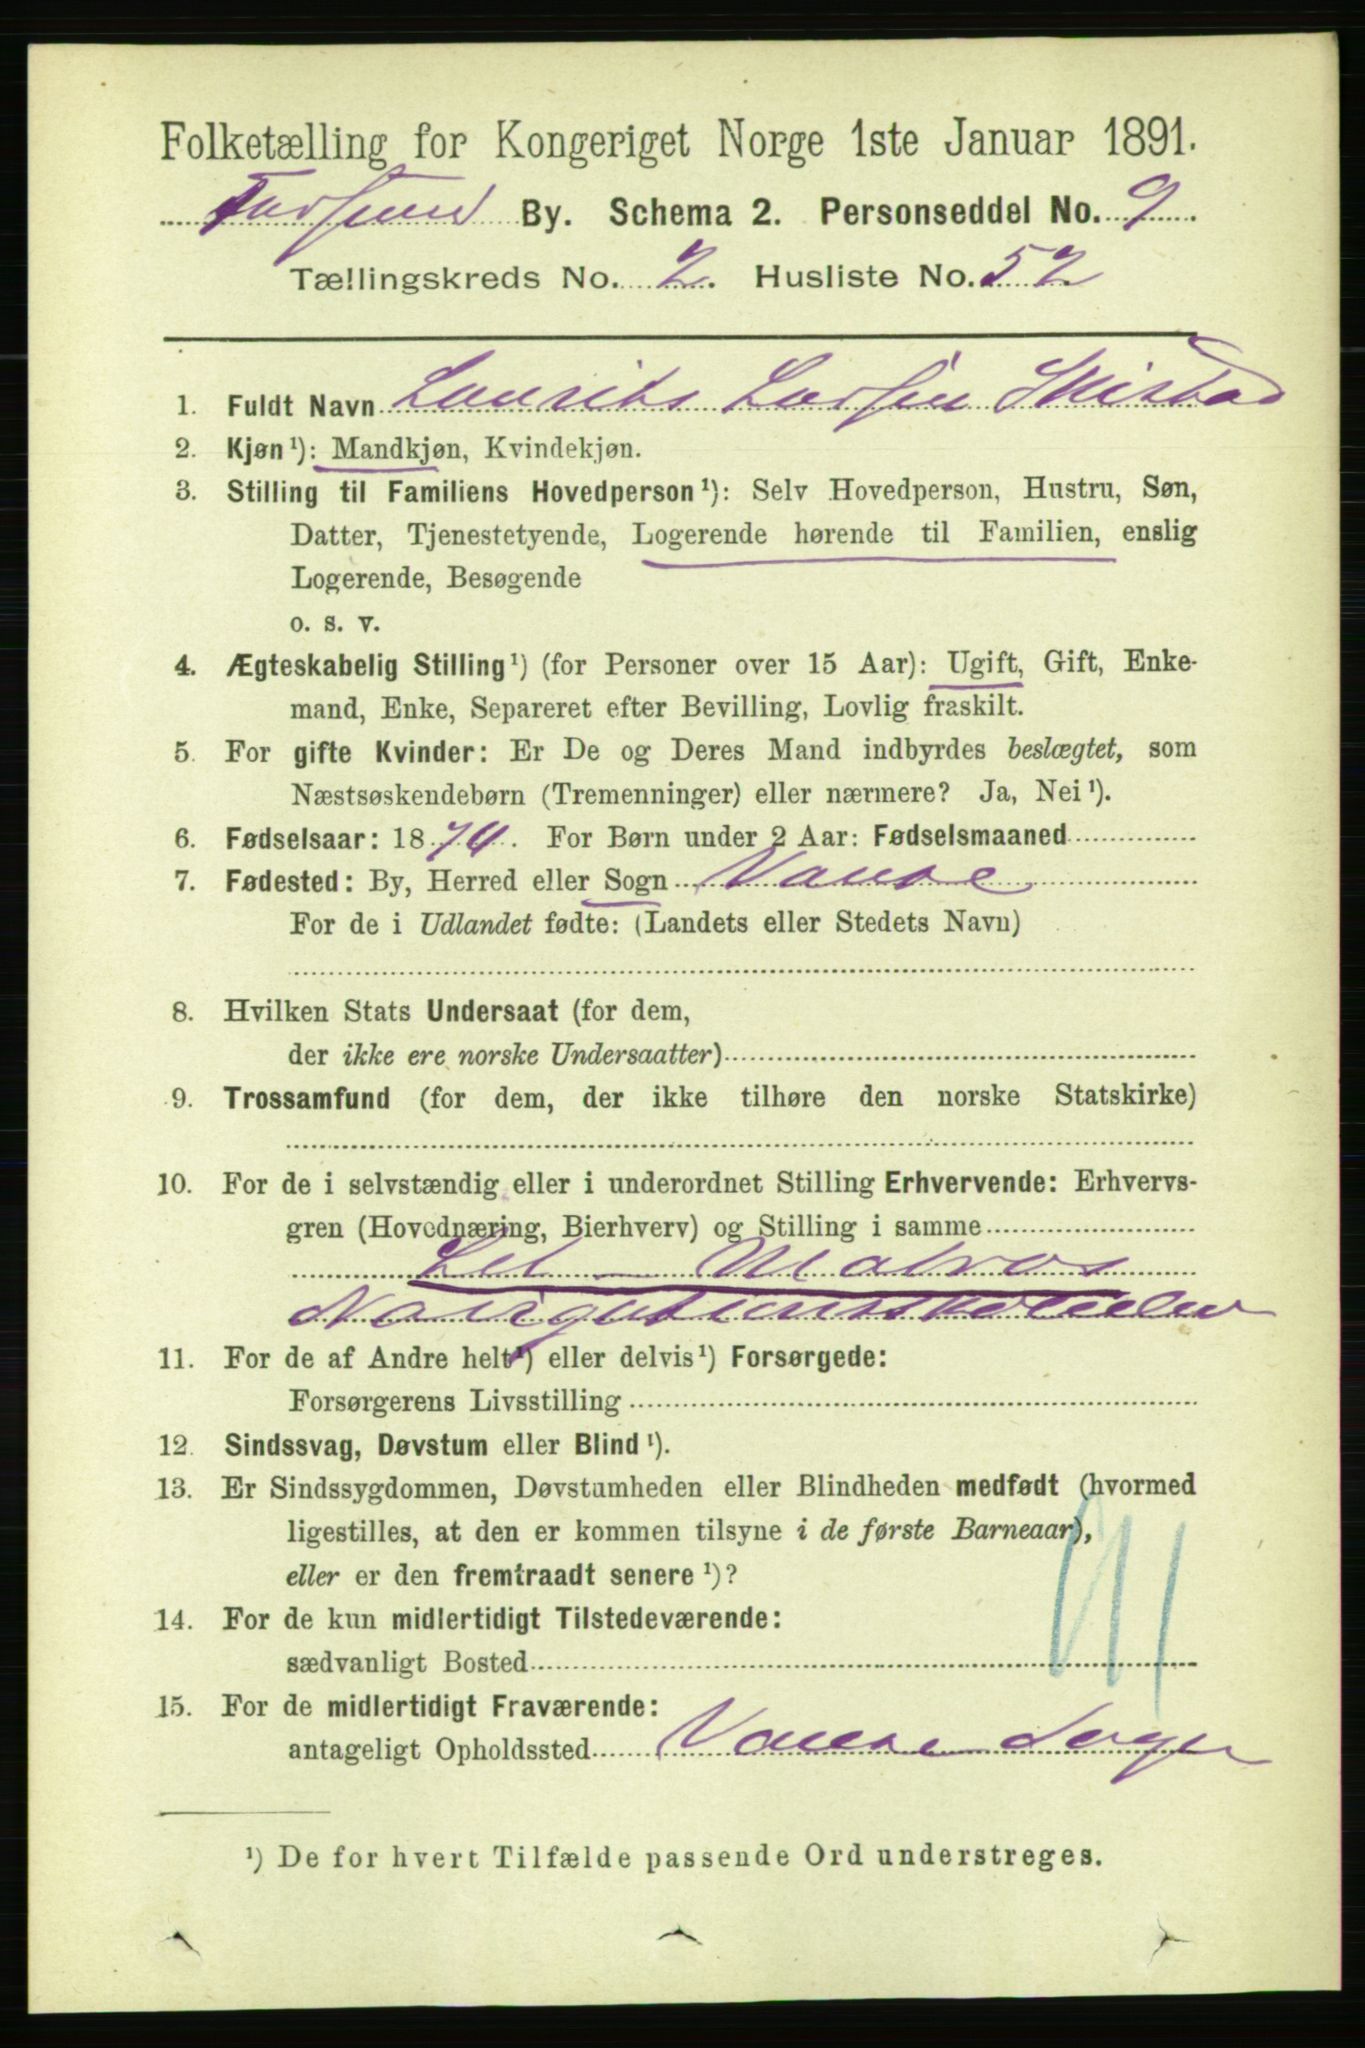 Folketælling for Kongeriget Norge 1ste Januar 1891.
Farsund By. Schema 2. Personseddel No. 9.
Tællingskreds No. 2. Husliste No. 52
1. Fuldt Navn Laurits Larsen
2. Kjøn ¹): Mandkjøn, Kvindekjøn.
3. Stilling til Familiens Hovedperson ¹): Selv Hovedperson, Hustru, Søn,
Datter, Tjenestetyende, Logerende hørende til Familien, enslig
Logerende, Besøgende
o. s. v.
4. Ægteskabelig Stilling ¹) (for Personer over 15 Aar): Ugift, Gift, Enke-
mand, Enke, Separeret efter Bevilling, Lovlig fraskilt.
5. For gifte Kvinder: Er De og Deres Mand indbyrdes beslægtet, som
Næstsøskendebørn (Tremenninger) eller nærmere? Ja, Nei ¹).
6. Fødselsaar: 1874. For Børn under 2 Aar: Fødselsmaaned
7. Fødested: By, Herred eller Sogn Vanse
For de i Udlandet fødte: (Landets eller Stedets Navn)
8. Hvilken Stats Undersaat (for dem,
der ikke ere norske Undersaatter)
9. Trossamfund (for dem, der ikke tilhøre den norske Statskirke)
10. For de i selvstændig eller i underordnet Stilling Erhvervende: Erhvervs-
gren (Hovednæring, Bierhverv) og Stilling i samme
Matros
Navigationsskoleelev
11. For de af Andre helt ¹) eller delvis ¹) Forsørgede:
Forsørgerens Livsstilling
12. Sindssvag, Døvstum eller Blind ¹).
13. Er Sindssygdommen, Døvstumheden eller Blindheden medfødt (hvormed
ligestilles, at den er kommen tilsyne i de første Barneaar),
eller er den fremtraadt senere ¹)?
14. For de kun midlertidigt Tilstedeværende:
sædvanligt Bosted
15. For de midlertidigt Fraværende:
antageligt Opholdssted Vanse Sogn
¹) De for hvert Tilfælde passende Ord understreges.